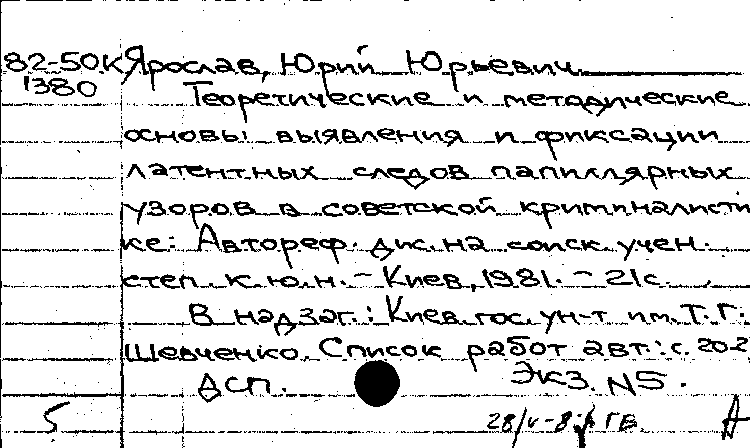 82-50К Ярослав, Юрий Юрьевич
1380 Теоретические и методические
основы выявления и фиксации
латентных следов папиллярных
узоров в советской криминалисти
ке: Автореф. дис. на соиск. учен.
степ. к.ю.н. - Киев, 1981. - 21с.
В надзаг.: Киев. гос. ун-т им. Т.Г.
Шевченко. Список работ авт.: с. 20-2
ДСП. Экз. N5.
5 28/V-8 ГВ. А